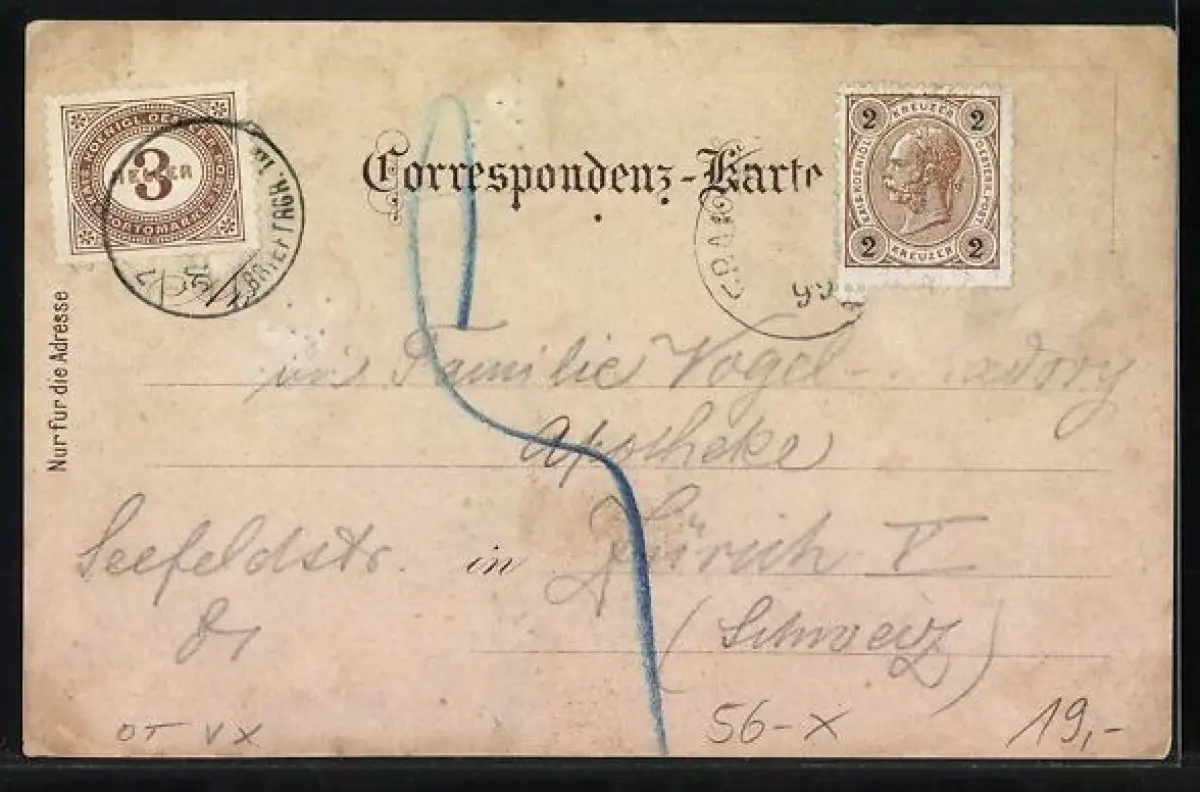 KAIS. KOENIGL. OESTERR. POST
3
HELLER
PORTOMARKE
BRIEFTRÄGR.
Correspondenz-Karte
2 KREUZER 2
KAIS. KOENIGL. OESTERR. POST
2 KREUZER 2
GRA
99
Nur für die Adresse
Familie Vogel-
Apotheke
Seefeldstr. in Zürich V
(Schweiz)
OT VX
56-X
19,-